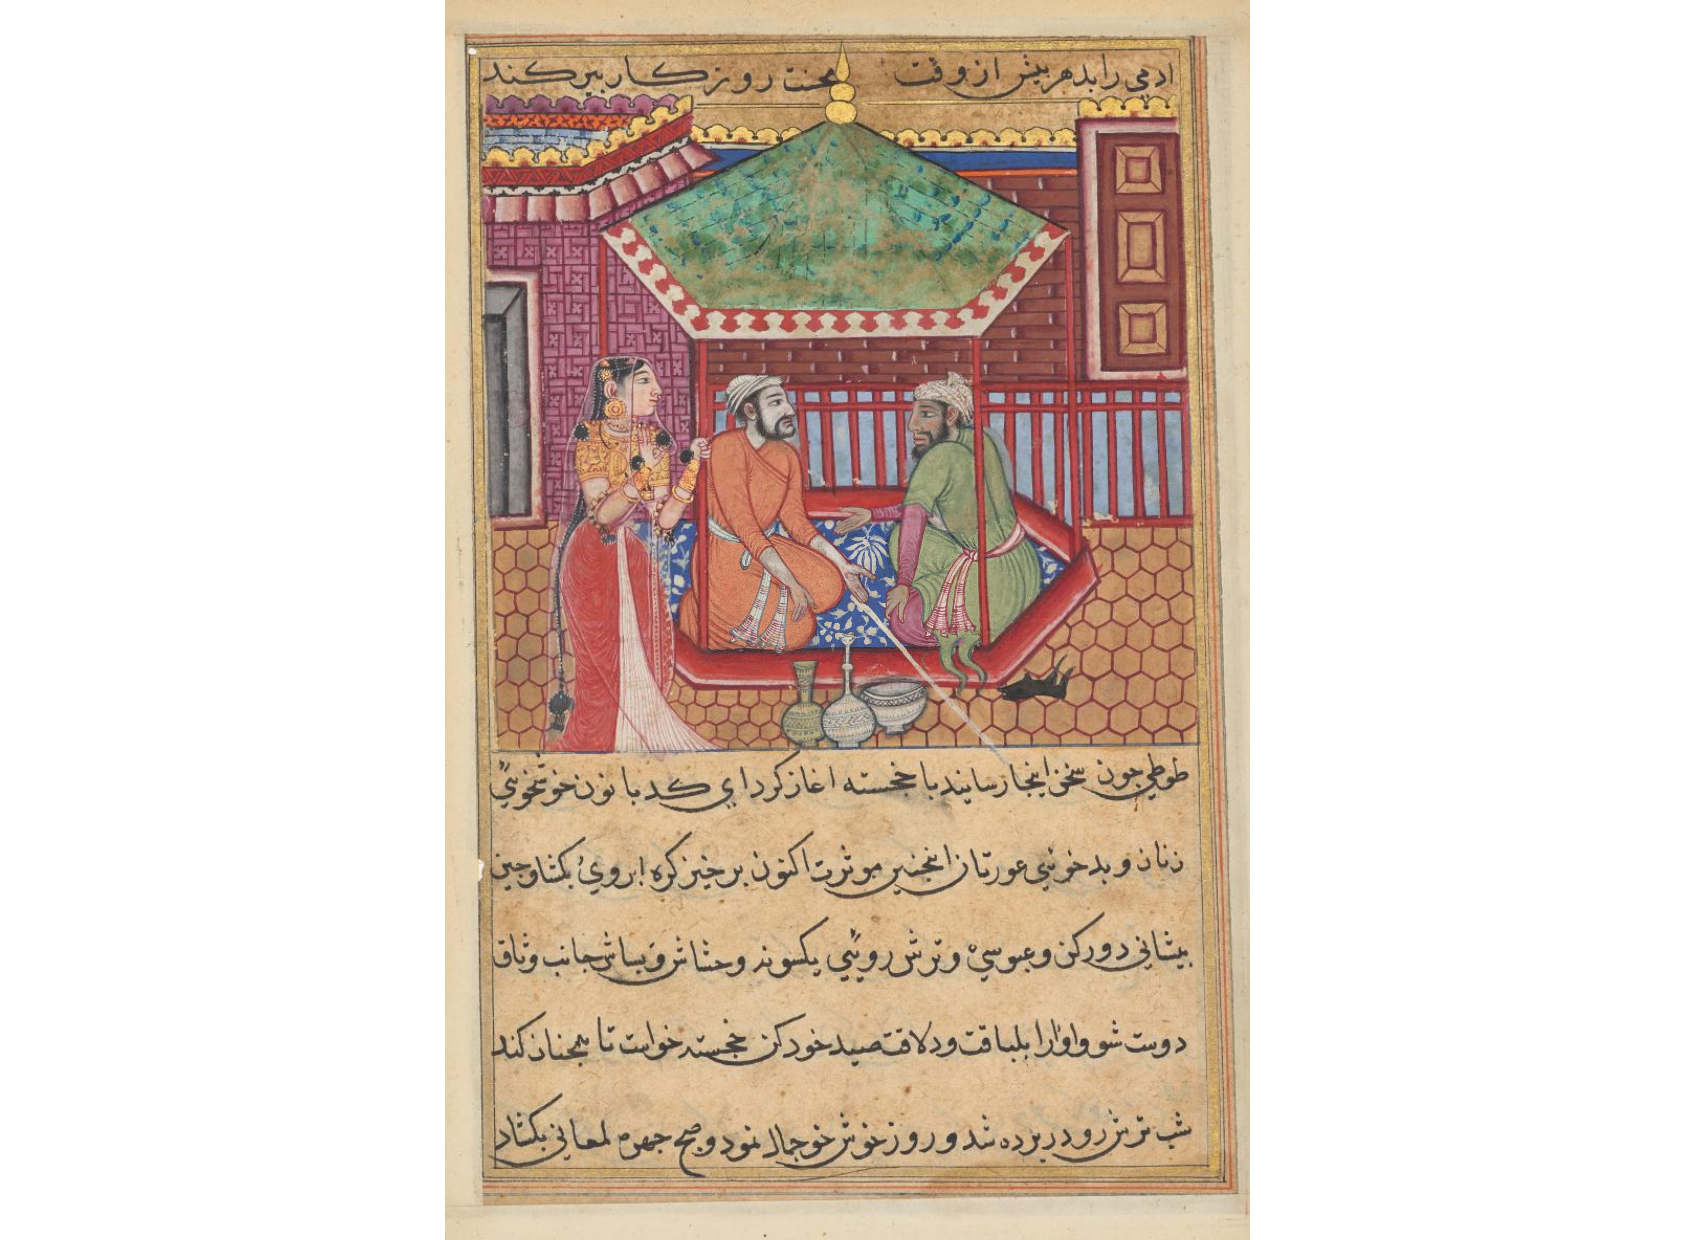 ادمي را بدهر بیش از وقت محنت روزکار پیر کند
طوطي جون سخن اینجا رسانید با خجسته اغاز کرد اي کدبانو ن خوشخوئي
زنان و بدخوئي عورتان اینجنین موثرت اکنون برخیز کره ابروي بکشا و جین
پیشاني دور کن و عبوسي و ترش روئي یکسو نه و حشاش و بساش جانب وثاق
دوست شو و او را بلباقت و دلاقت صید خود کن خجسته خواست تا همجنان کند
شب ترش رو در پرده شد و روز خوش خو جمال نمود و صبح جهره لمعاني بکشاد